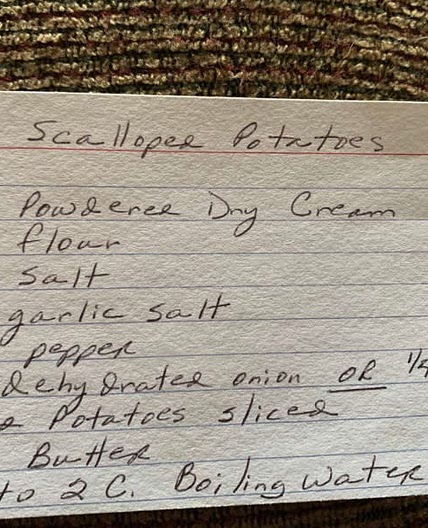 Scalloped Potatoes
Powdered Dry Cream
flour
salt
garlic salt
pepper
dehydrated onion OR 1/4
Potatoes sliced
Butter
to 2 C. Boiling Water